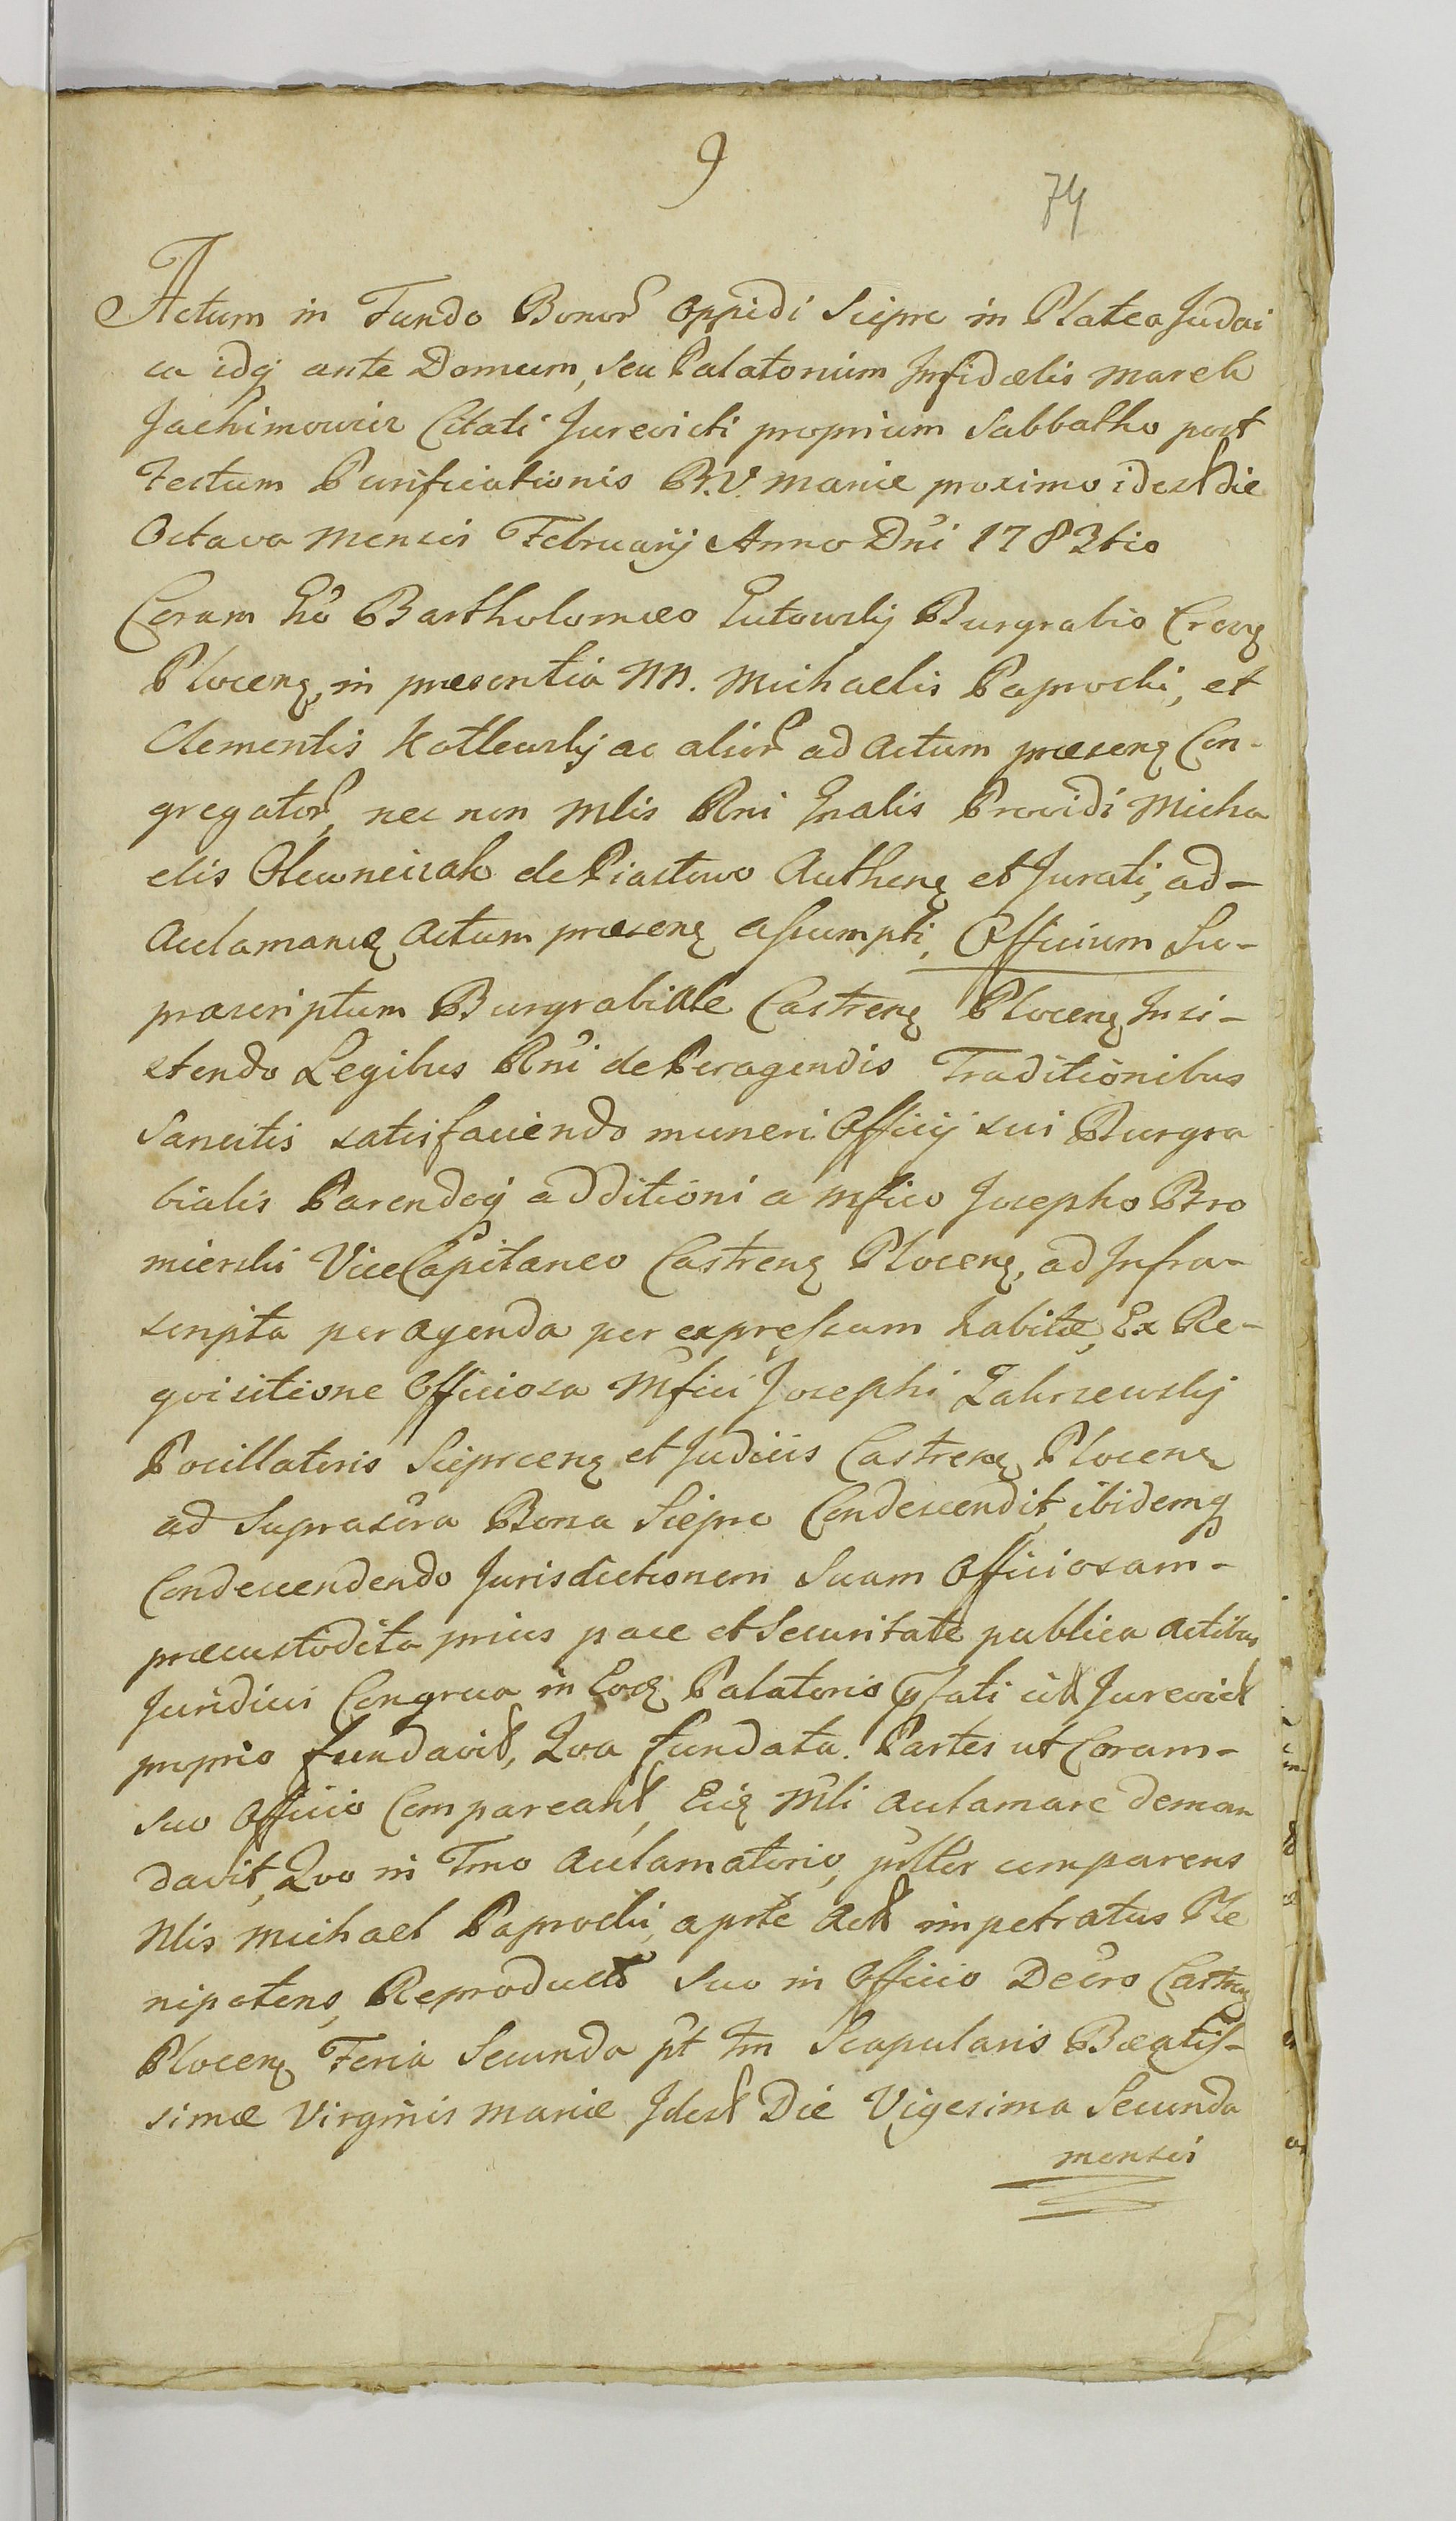 9
74
Actum in Fundo Bonor Oppidi Sieprc in Platea Judai
ca idq ante Domum, seu Palatorium Infidelis Marek
Jachimowicz Citati Jurevicti proprium Sabbatho post
Festum Purificationis B.V. Mariæ proximo idest die
Octava Mensis Februarij Anno Dni 1783tio
Coram Gso Bartholomæo Gutowskij Burgrabio
Plocenẜ, in præsentia NN. Michaelis Paprocki, et
Clementis Kotlewskij ac alior ad Actum præsenẜ Con-
gregator, nec non Mlis Rni Gnalis Providi Micha
elis Olewniczak de Piastowo Authenẜ et Jurati, ad-
Acclamanẜ Actum præsenẜ assumpti, Officium Su-
prascriptum Burgrabiale Castrenẜ Plocenẜ Insi-
stendo Legibus Rni de Peragendis Traditionibus
Sancitis satisfaciendo muneri Officij sui Burgra
bialis Parendoq additioni a Mfico Josepho Bro
mierski ViceCapitaneo Castrenẜ Plocenẜ, ad Infra-
scripta peragenda per expressum habitæ, Ex Re-
qvisitione Officiosa Mfici Josephi Zakrzewskij
Pocillatoris Sieprcenẜ et Judicii Castrenẜ Plocenẜ
ad Suprascra Bona Sieprc Condescendit, ibidemq
Condescendendo Jurisdictionem Suam Officiosam-
præcustodita prius pace et Securitate publica Actibus
Juridicis Congrua in Eoẜ Palatorio pfati cit Jurevict
proprio fundavit, Qva fundata. Partes ut Coram-
suo Officio Compareant, Eiẜ Mli Acclamare deman
davit, Qvo in Tmo Acclamatorio, pltter comparens
Nlis Michael Paprocki, a parte Act impetratus Ple
nipotens, Reproducto suo in Officio Decro Castrenẜ
Plocenẜ Feria Secunda pt fm Scapularis Beatis-
simæ Virginis Mariæ Idest Die Vigesima Secunda
mensis